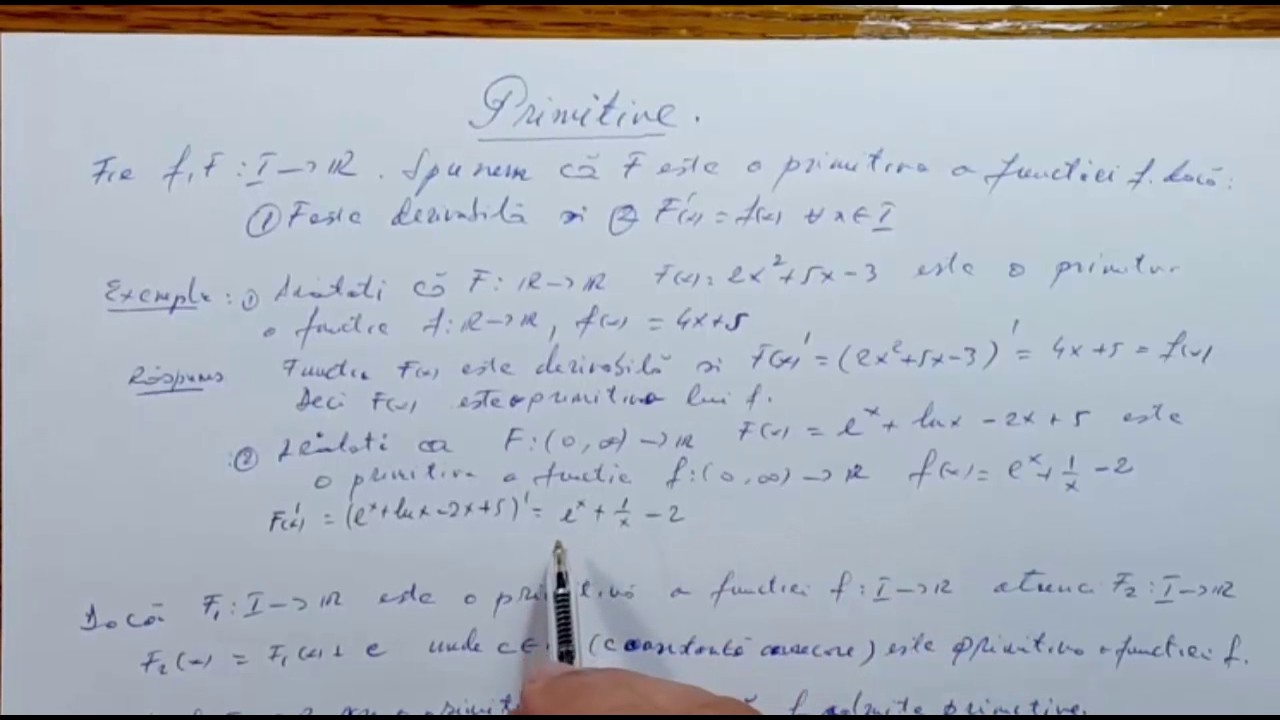 Primitive.
Fie f, F : I → R. Spunem că F este o primitiva a functiei f. dacă:
① F este derivabilă si ② F'(x) = f(x) ∀ x ∈ I
Exemple: ① Aratati că F : R → R F(x) = 2x² + 5x - 3 este o primitiv
a functie f : R → R, f(x) = 4x + 5
Răspuns Functia F(x) este derivabilă si F(x)' = (2x² + 5x - 3)' = 4x + 5 = f(x)
Deci F(x) este o primitiva lui f.
② Aratati ca F : (0, ∞) → R F(x) = e^x + ln x - 2x + 5 este
o primitiva a functie f : (0, ∞) → R f(x) = e^x + 1/x - 2
F'(x) = (e^x + ln x - 2x + 5)' = e^x + 1/x - 2
Dacă F₁ : I → R este o primitivă a functiei f : I → R atunci F₂ : I → R
F₂(x) = F₁(x) + c unde c ∈ (constantă oarecare) este primitiva a functiei f.
f admite primitive.